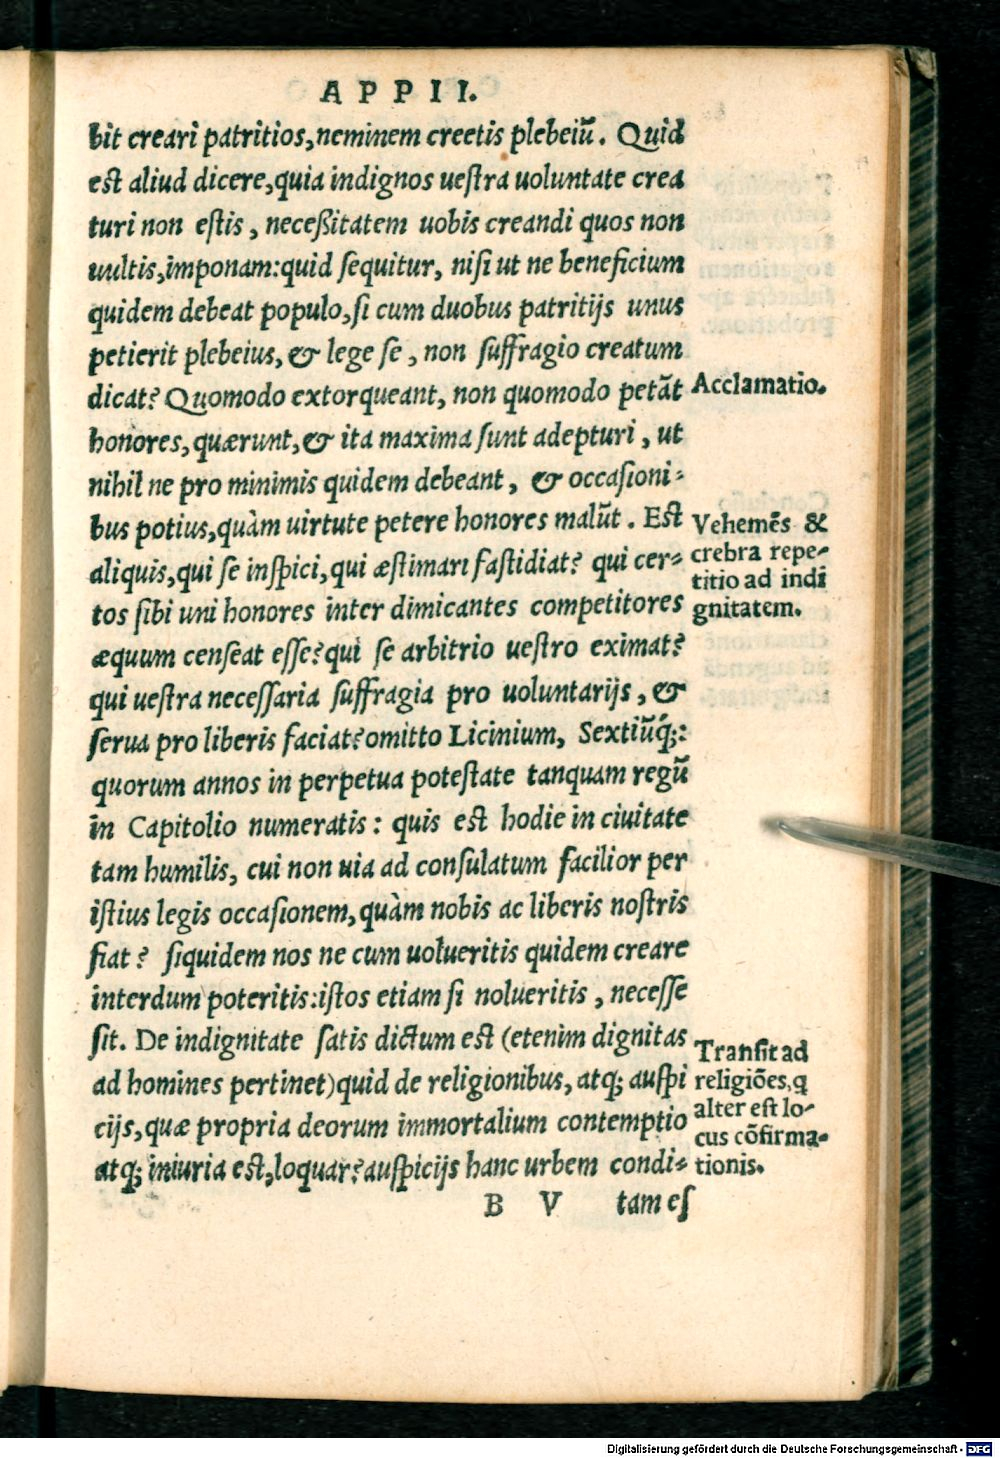 APPII.
bit creari patritios, neminem creetis plebeiũ. Quid
est aliud dicere, quia indignos uestra uoluntate crea
turi non estis, neceßitatem uobis creandi quos non
uultis, imponam: quid sequitur, nisi ut ne beneficium
quidem debeat populo, si cum duobus patritijs unus
petierit plebeius, & lege se, non suffragio creatum
dicat? Quomodo extorqueant, non quomodo petãt
Acclamatio.
honores, quærunt, & ita maxima sunt adepturi, ut
nihil ne pro minimis quidem debeant, & occasioni-
bus potius, quàm uirtute petere honores malũt. Est
aliquis, qui se inspici, qui æstimari fastidiat? qui cer-
tos sibi uni honores inter dimicantes competitores
Vehemẽs &
crebra repe-
titio ad indi
gnitatem.
æquum censeat esse? qui se arbitrio uestro eximat?
qui uestra necessaria suffragia pro uoluntarijs, &
serua pro liberis faciat? omitto Licinium, Sextiũq́;:
quorum annos in perpetua potestate tanquam regũ
in Capitolio numeratis: quis est hodie in ciuitate
tam humilis, cui non uia ad consulatum facilior per
istius legis occasionem, quàm nobis ac liberis nostris
fiat? siquidem nos ne cum uolueritis quidem creare
interdum poteritis: istos etiam si nolueritis, necesse
sit. De indignitate satis dictum est (etenim dignitas
ad homines pertinet) quid de religionibus, atq; auspi
cijs, quæ propria deorum immortalium contemptio
atq; iniuria est, loquar? auspicijs hanc urbem condi-
Transit ad
religiões, q
alter est lo-
cus cõfirma-
tionis.
B V tam es
Digitalisierung gefördert durch die Deutsche Forschungsgemeinschaft - DFG